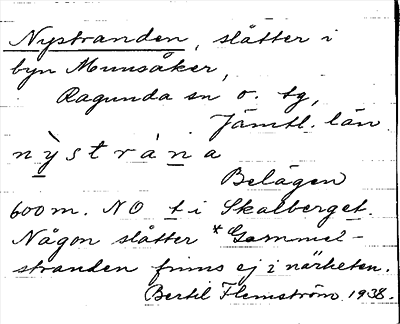 Nystranden, slåtter i
byn Munsåker,
Ragunda sn o. tg,
Jämtl. län
nỳstràna
Belägen
600 m. NO t i Skalberget.
Någon slåtter *Gammel-
stranden finns ej i närheten.
Bertil Flemström 1938.